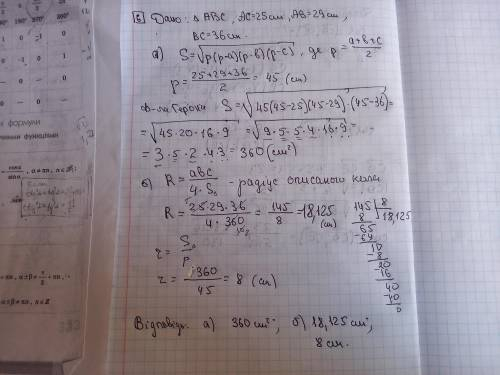 5 Дано: Δ ABC, AC=25см, AB=29см,
BC=36см.
а) S=√p(p-a)(p-b)(p-c), де p=(a+b+c)/2
p=(25+29+36)/2 = 45 (см)
Ф-ла Герона S=√45(45-25)(45-29)·(45-36)=
=√45·20·16·9 =√9·5·5·4·16·9=
=3·5·2·4·3=360(см²)
б) R=abc/4·S△ - радіус описаного кола
R=25·29·36/4·360=145/8=18,125 (см)
145 | 8
8 18,125
65
-64
10
-8
20
-16
40
-40
0
r=S△/p
r=360/45=8 (см)
Відповідь: а) 360см²; б) 18,125см;
8см.
формули
333